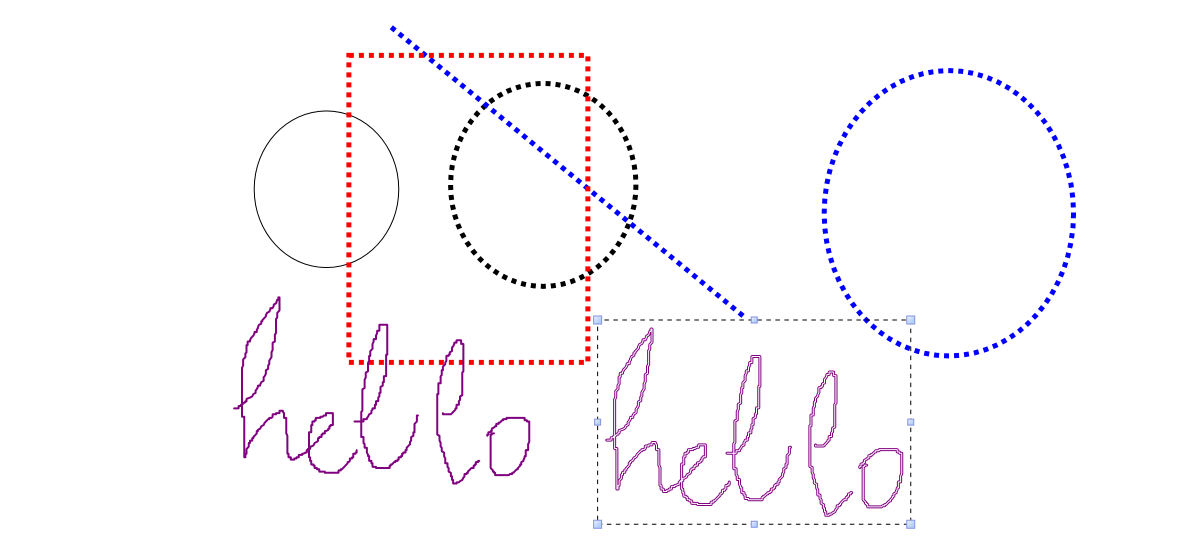 hello hello